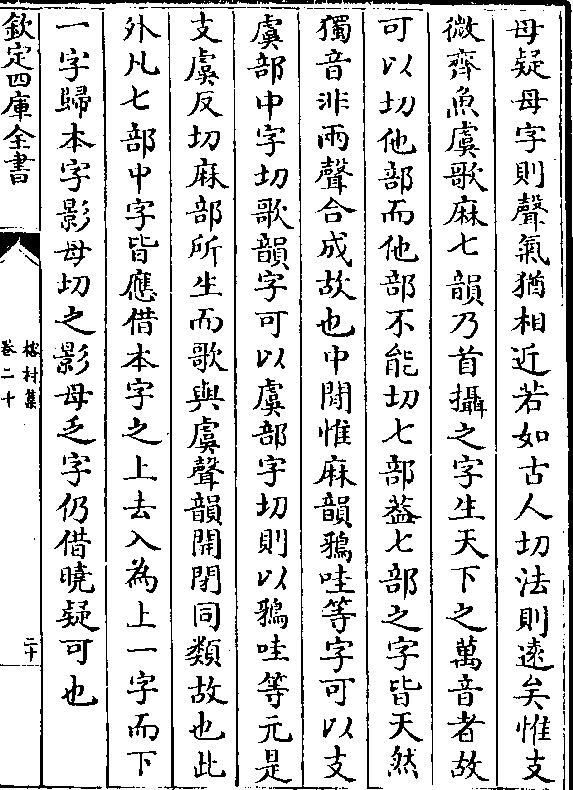 母疑母字則聲氣猶相近若如古人切法則逺矣惟支
微齊魚虞歌麻七韻乃首攝之字生天下之萬音者故
可以切他部而他部不能切七部葢七部之字皆天然
獨音非兩聲合成故也中間惟麻韻鴉哇等字可以支
虞部中字切歌韻字可以虞部字切則以鴉哇等元是
支虞反切麻部所生而歌與虞聲韻開閉同類故也此
外凡七部中字皆應借本字之上去入為上一字而下
一字歸本字影母切之影母乏字仍借曉疑可也
欽定四庫全書
榕村集
卷二十
二十